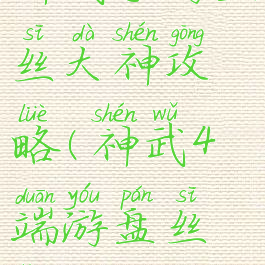 sī dà shén gōng
丝大神攻
lüè shén wǔ
略(神武4
duān yóu pán sī
端游盘丝